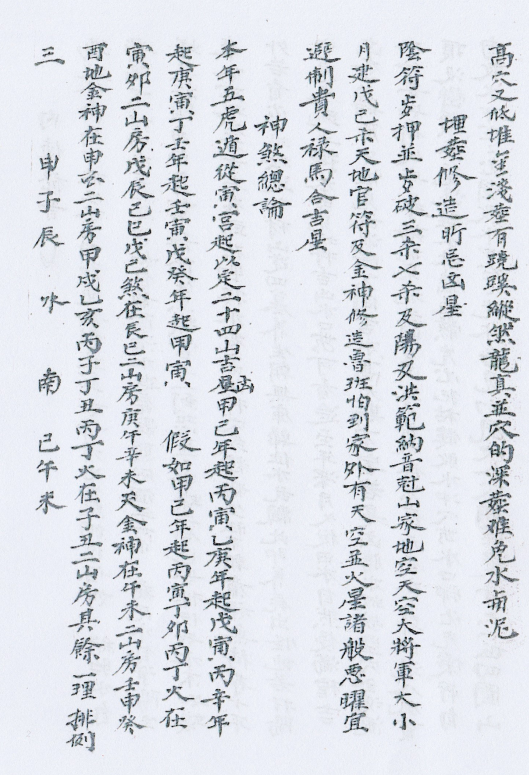 高穴又低堆金淺葬有蹺蹊縱然龍真並穴的深葬难免水與泥
埋葬修造所忌凶星
陰符歩押並歩破三杀七杀及陽刃洪範納音尅山家地空天空大將軍大小
月建戊己杀天地官符及金神修造魯班怕到家外有天空並火星諸般惡曜宜
避制貴人禄馬合吉星
神煞總論
本年五虎遁從寅宮起以定二十四山吉凶星甲己年起丙寅乙庚年起戊寅丙辛年
起庚寅丁壬年起壬寅戊癸年起甲寅 假如甲己年起丙寅丁卯丙丁火在
寅卯二山房戊辰己巳戊己煞在辰巳二山房庚午辛未天金神在午未二山房壬申癸
酉地金神在申酉二山房甲戌乙亥丙子丁丑丙丁火在子丑二山房其餘一理排例
三 申子辰 水 南 巳午未